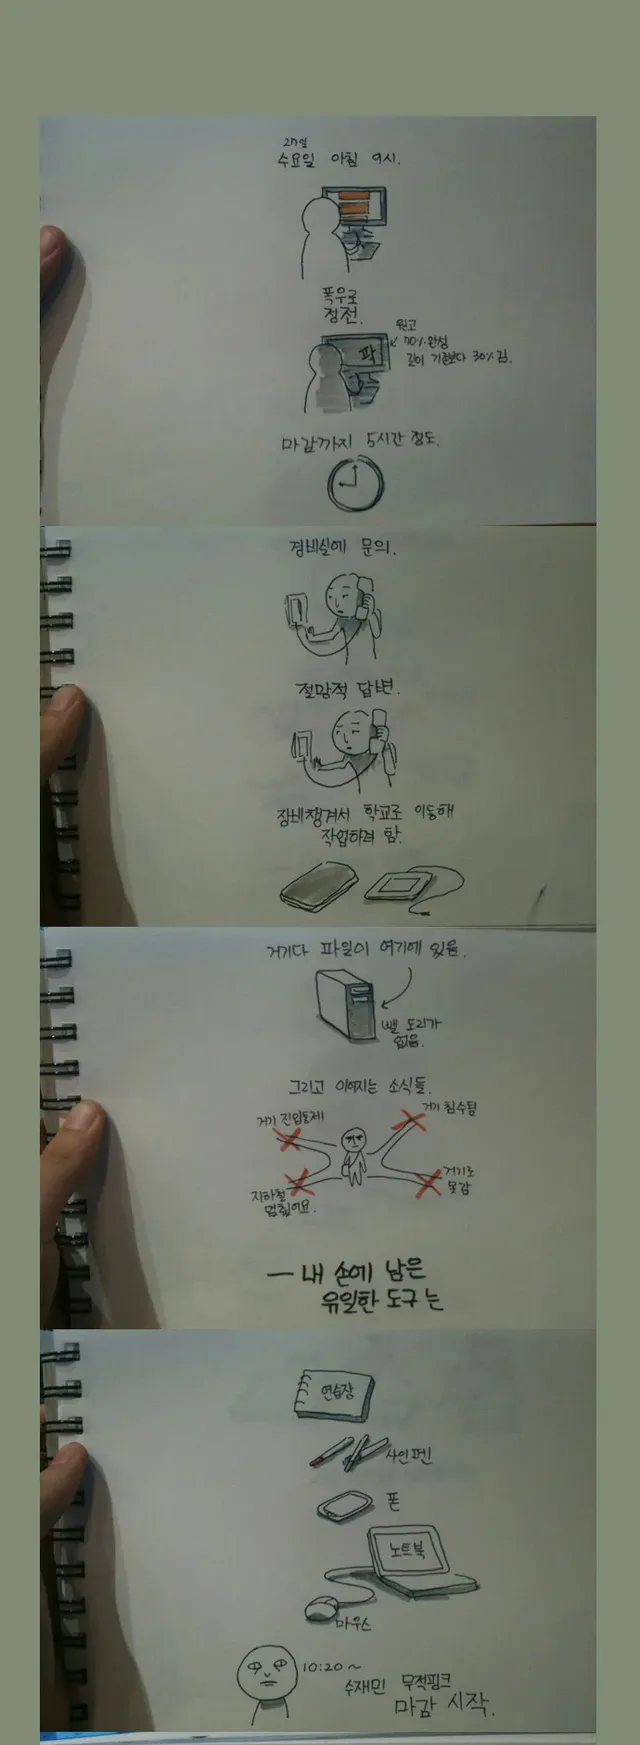 27일
수요일 아침 9시.
폭우로
정전.
원고
70% 완성
길이 기준보다 30% 김.
팍
마감까지 5시간 정도.
경비실에 문의.
절망적 답변.
장비챙겨서 학교로 이동해
작업하려 함.
거기다 파일이 여기에 있음.
뺄 도리가
없음.
그리고 이어지는 소식들.
거기 진입통제
거기 침수됨
지하철
멈췄어요.
거기로
못감
— 내 손에 남은
유일한 도구는
연습장
사인펜
폰
노트북
마우스
10:20~
수재민 무적핑크
마감 시작.